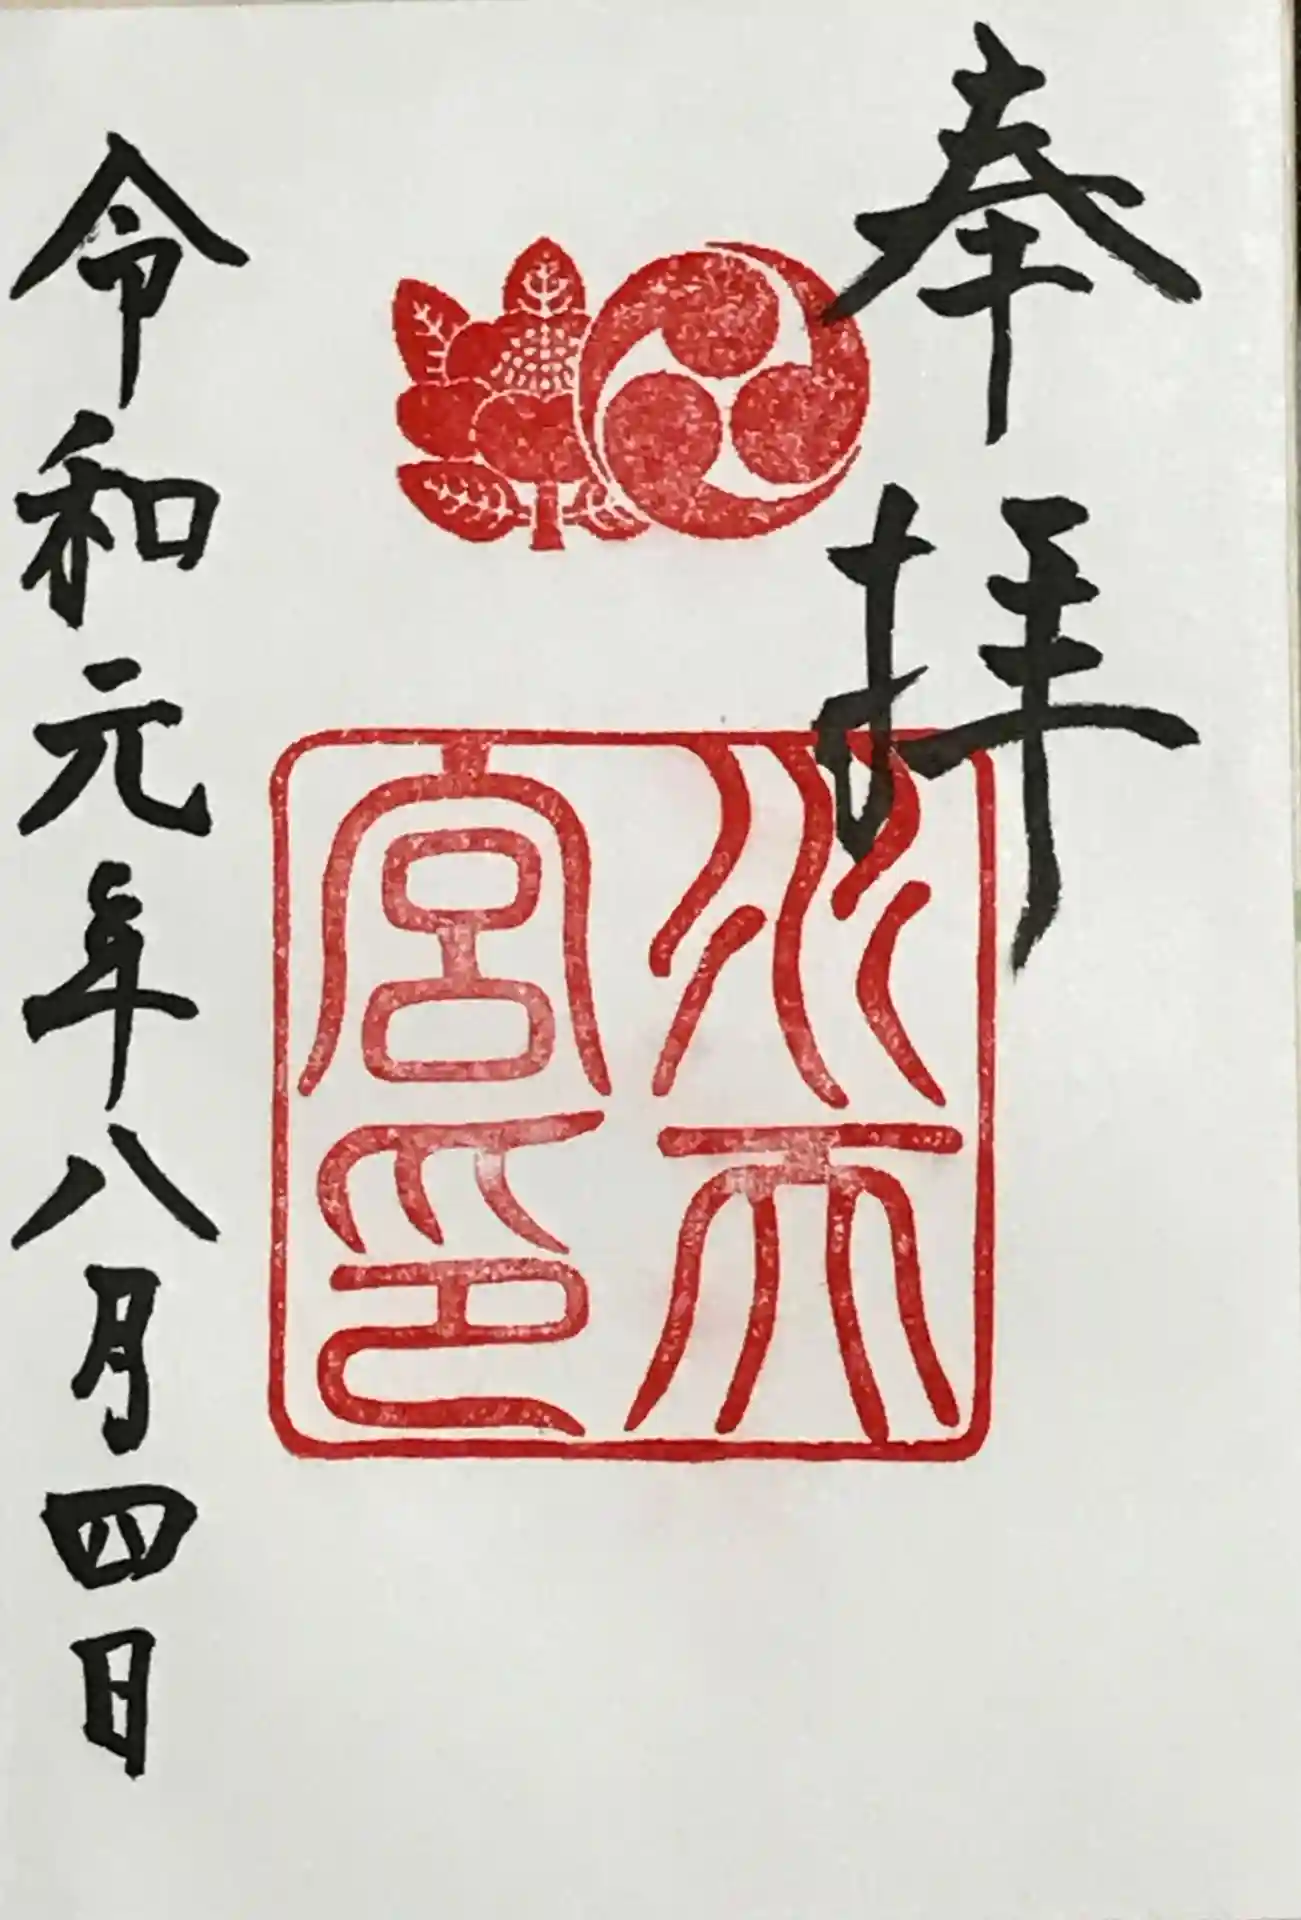 奉拝
水天
宮印
令和元年八月四日